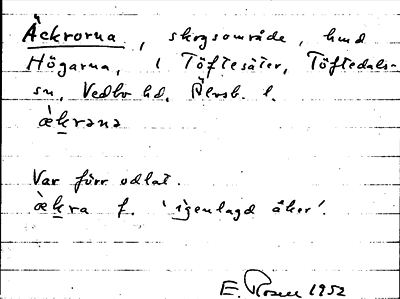 Äckrorna, skogsområde, hmd
Högarna, i Töftesäter, Töftedals-
sn, Vedbo hd, Älvsb. l.
æ̀krana
Var förr odlat.
æ̀kra f. 'igenlagd åker'.
E. Rosen 1952